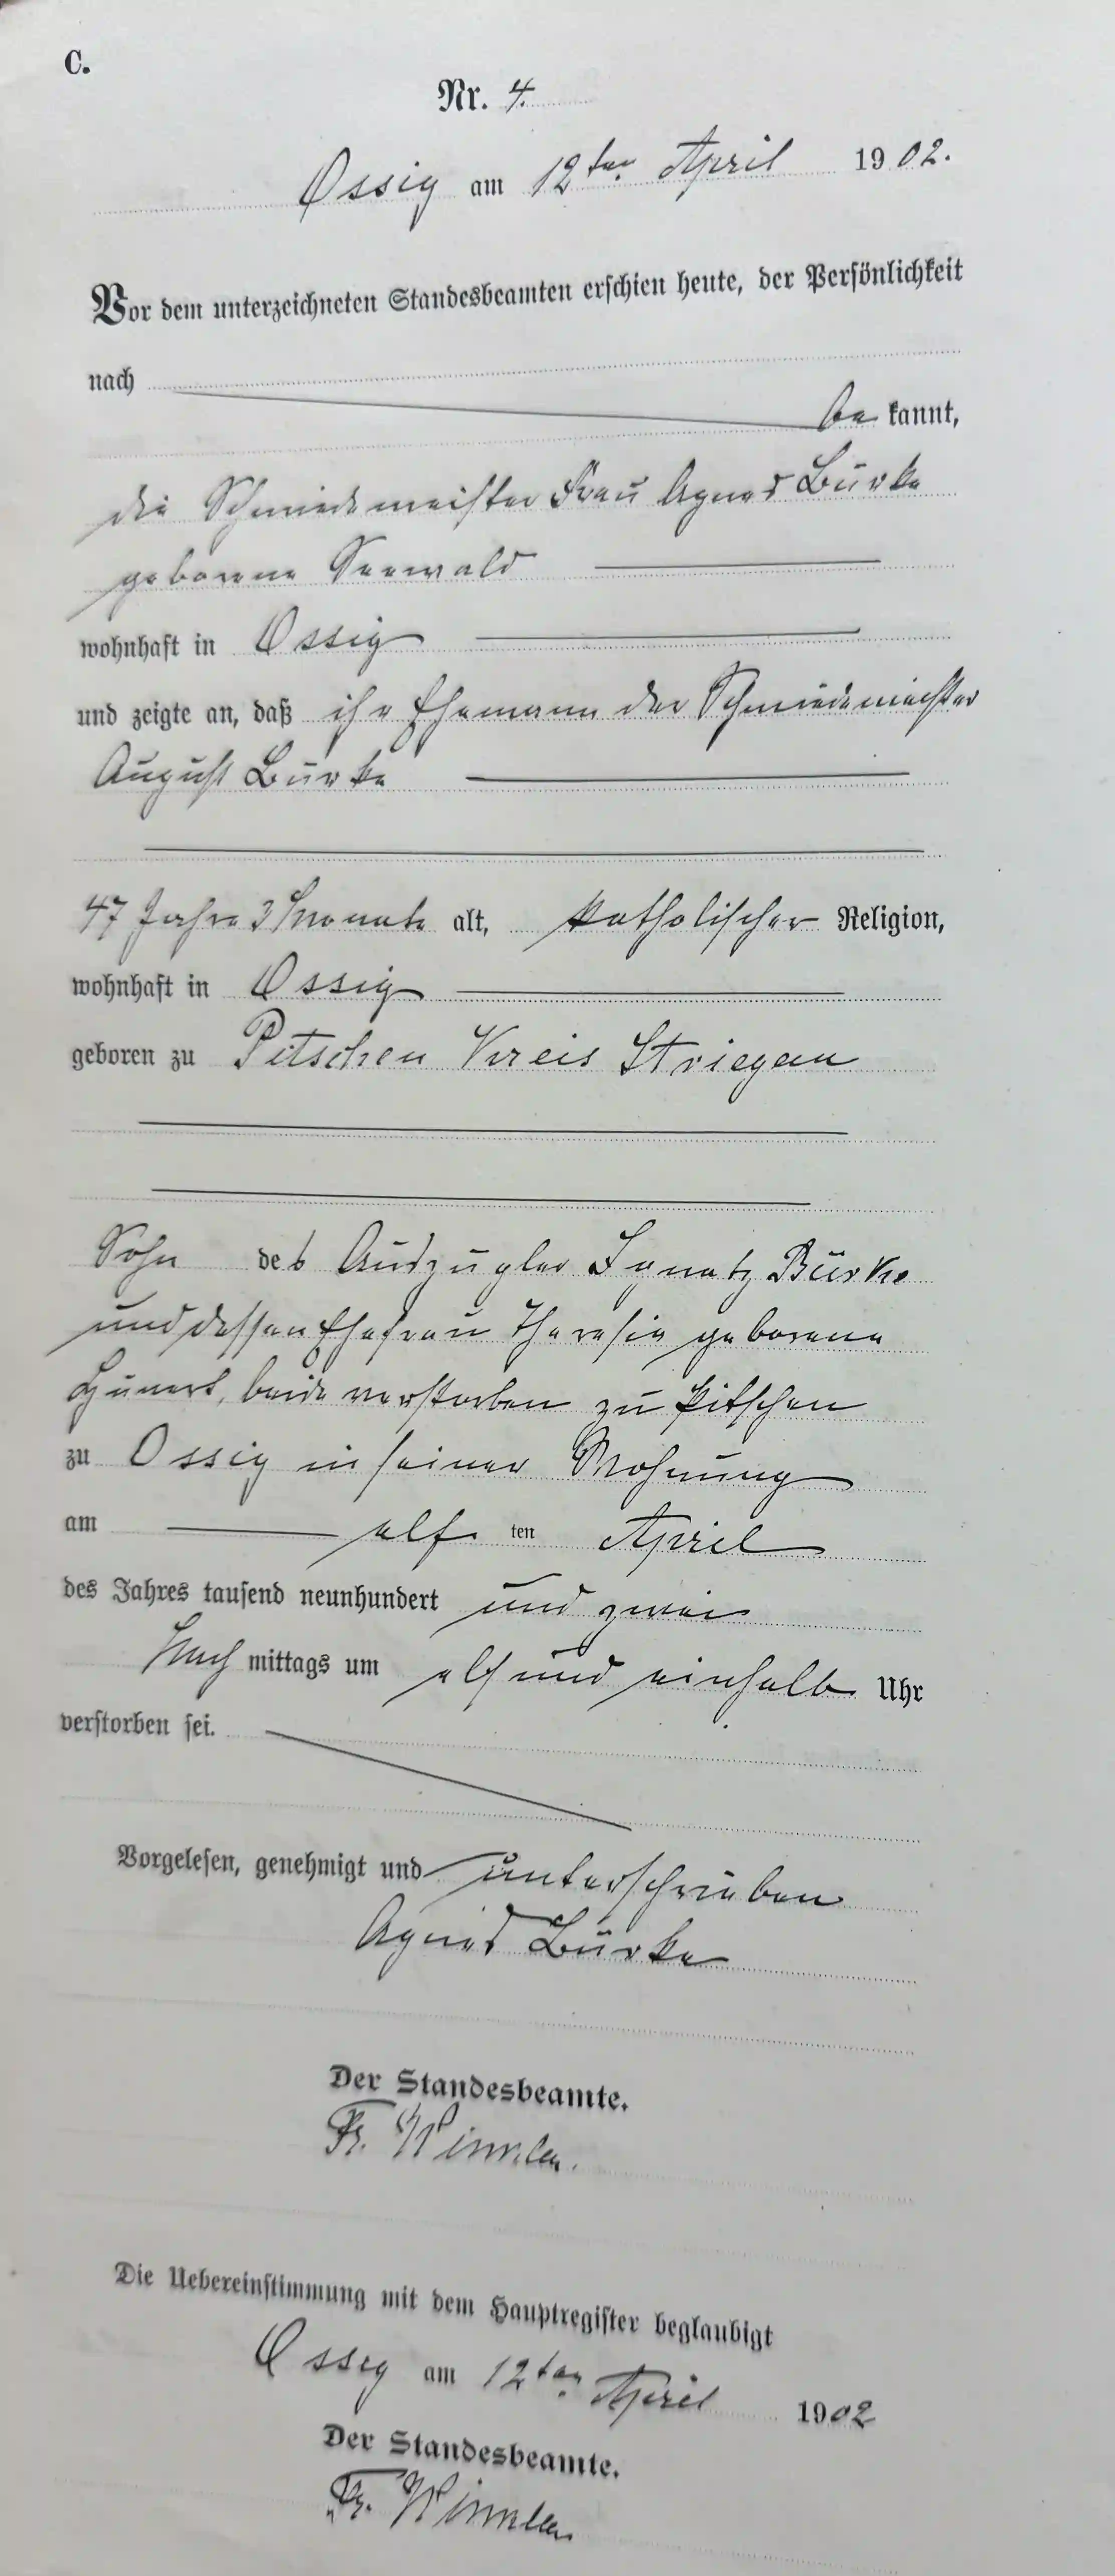 C.
Nr. 4.
Ossig am 12ten April 1902.
Vor dem unterzeichneten Standesbeamten erschien heute, der Persönlichkeit
nach
be kannt,
die Schmiedemeister Frau Agnes Bürke
geborene Seewald
wohnhaft in Ossig
und zeigte an, daß ihr Ehemann der Schmiedemeister
August Bürke
47 Jahre 3 Monate alt, katholischer Religion,
wohnhaft in Ossig
geboren zu Pitschen Kreis Striegau
Sohn des Auszügler Ignatz Bürke
und dessen Ehefrau Theresia geborene
beide verstorben zu Pitschen
zu Ossig in seiner Wohnung
am elf ten April
des Jahres tausend neunhundert und zwei
Nach mittags um elf und einhalb Uhr
verstorben sei.
Vorgelesen, genehmigt und unterschrieben
Agnes Bürke
Der Standesbeamte.
Fr.
Die Uebereinstimmung mit dem Hauptregister beglaubigt
Ossig am 12ten April 1902
Der Standesbeamte.
Fr.